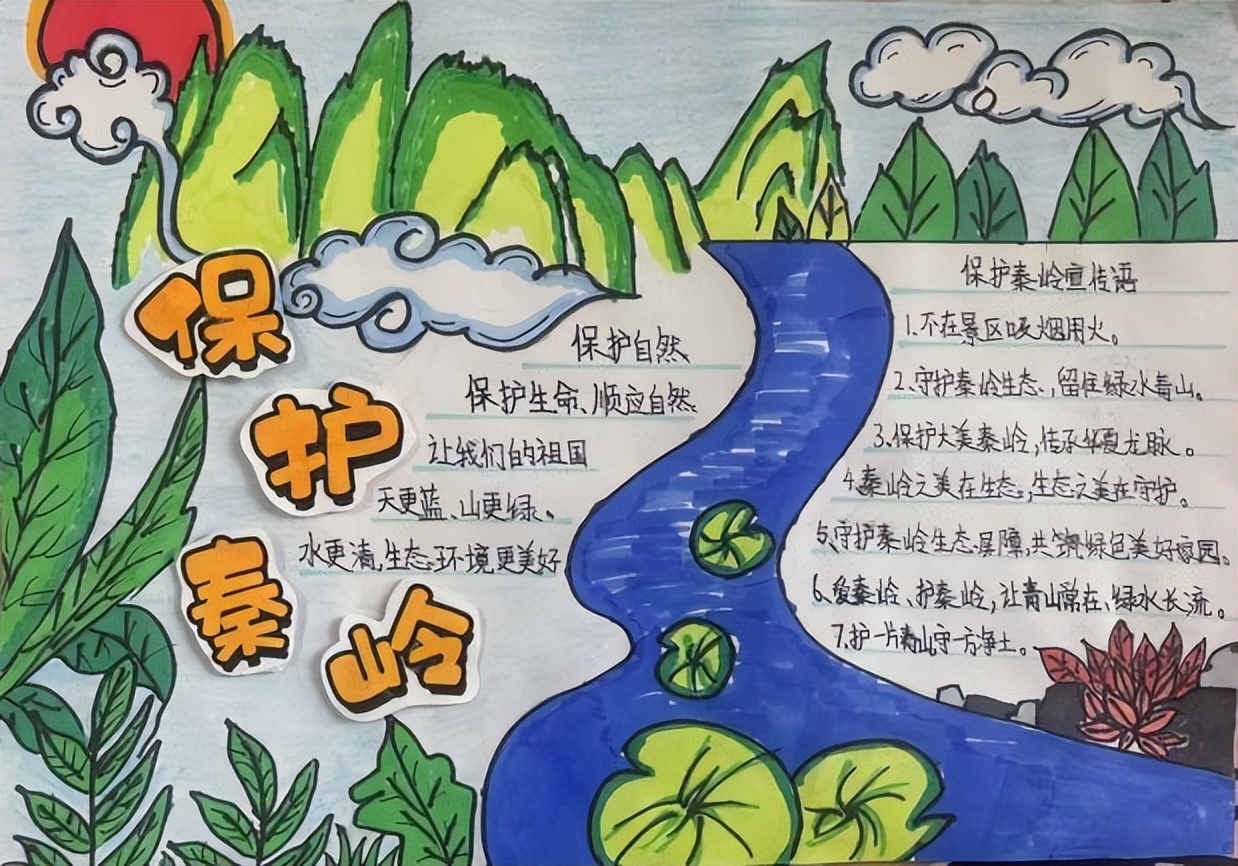 保护秦岭
保护自然
保护生命、顺应自然
让我们的祖国
天更蓝、山更绿。
水更清,生态环境更美好
保护秦岭宣传语
1.不在景区吸烟用火。
2.守护秦岭生态,留住绿水青山。
3.保护大美秦岭,传承华夏龙脉。
4.秦岭之美在生态,生态之美在守护。
5.守护秦岭生态屏障,共筑绿色美好家园。
6.爱秦岭、护秦岭,让青山常在、绿水长流。
7.护一片青山守一方净土。